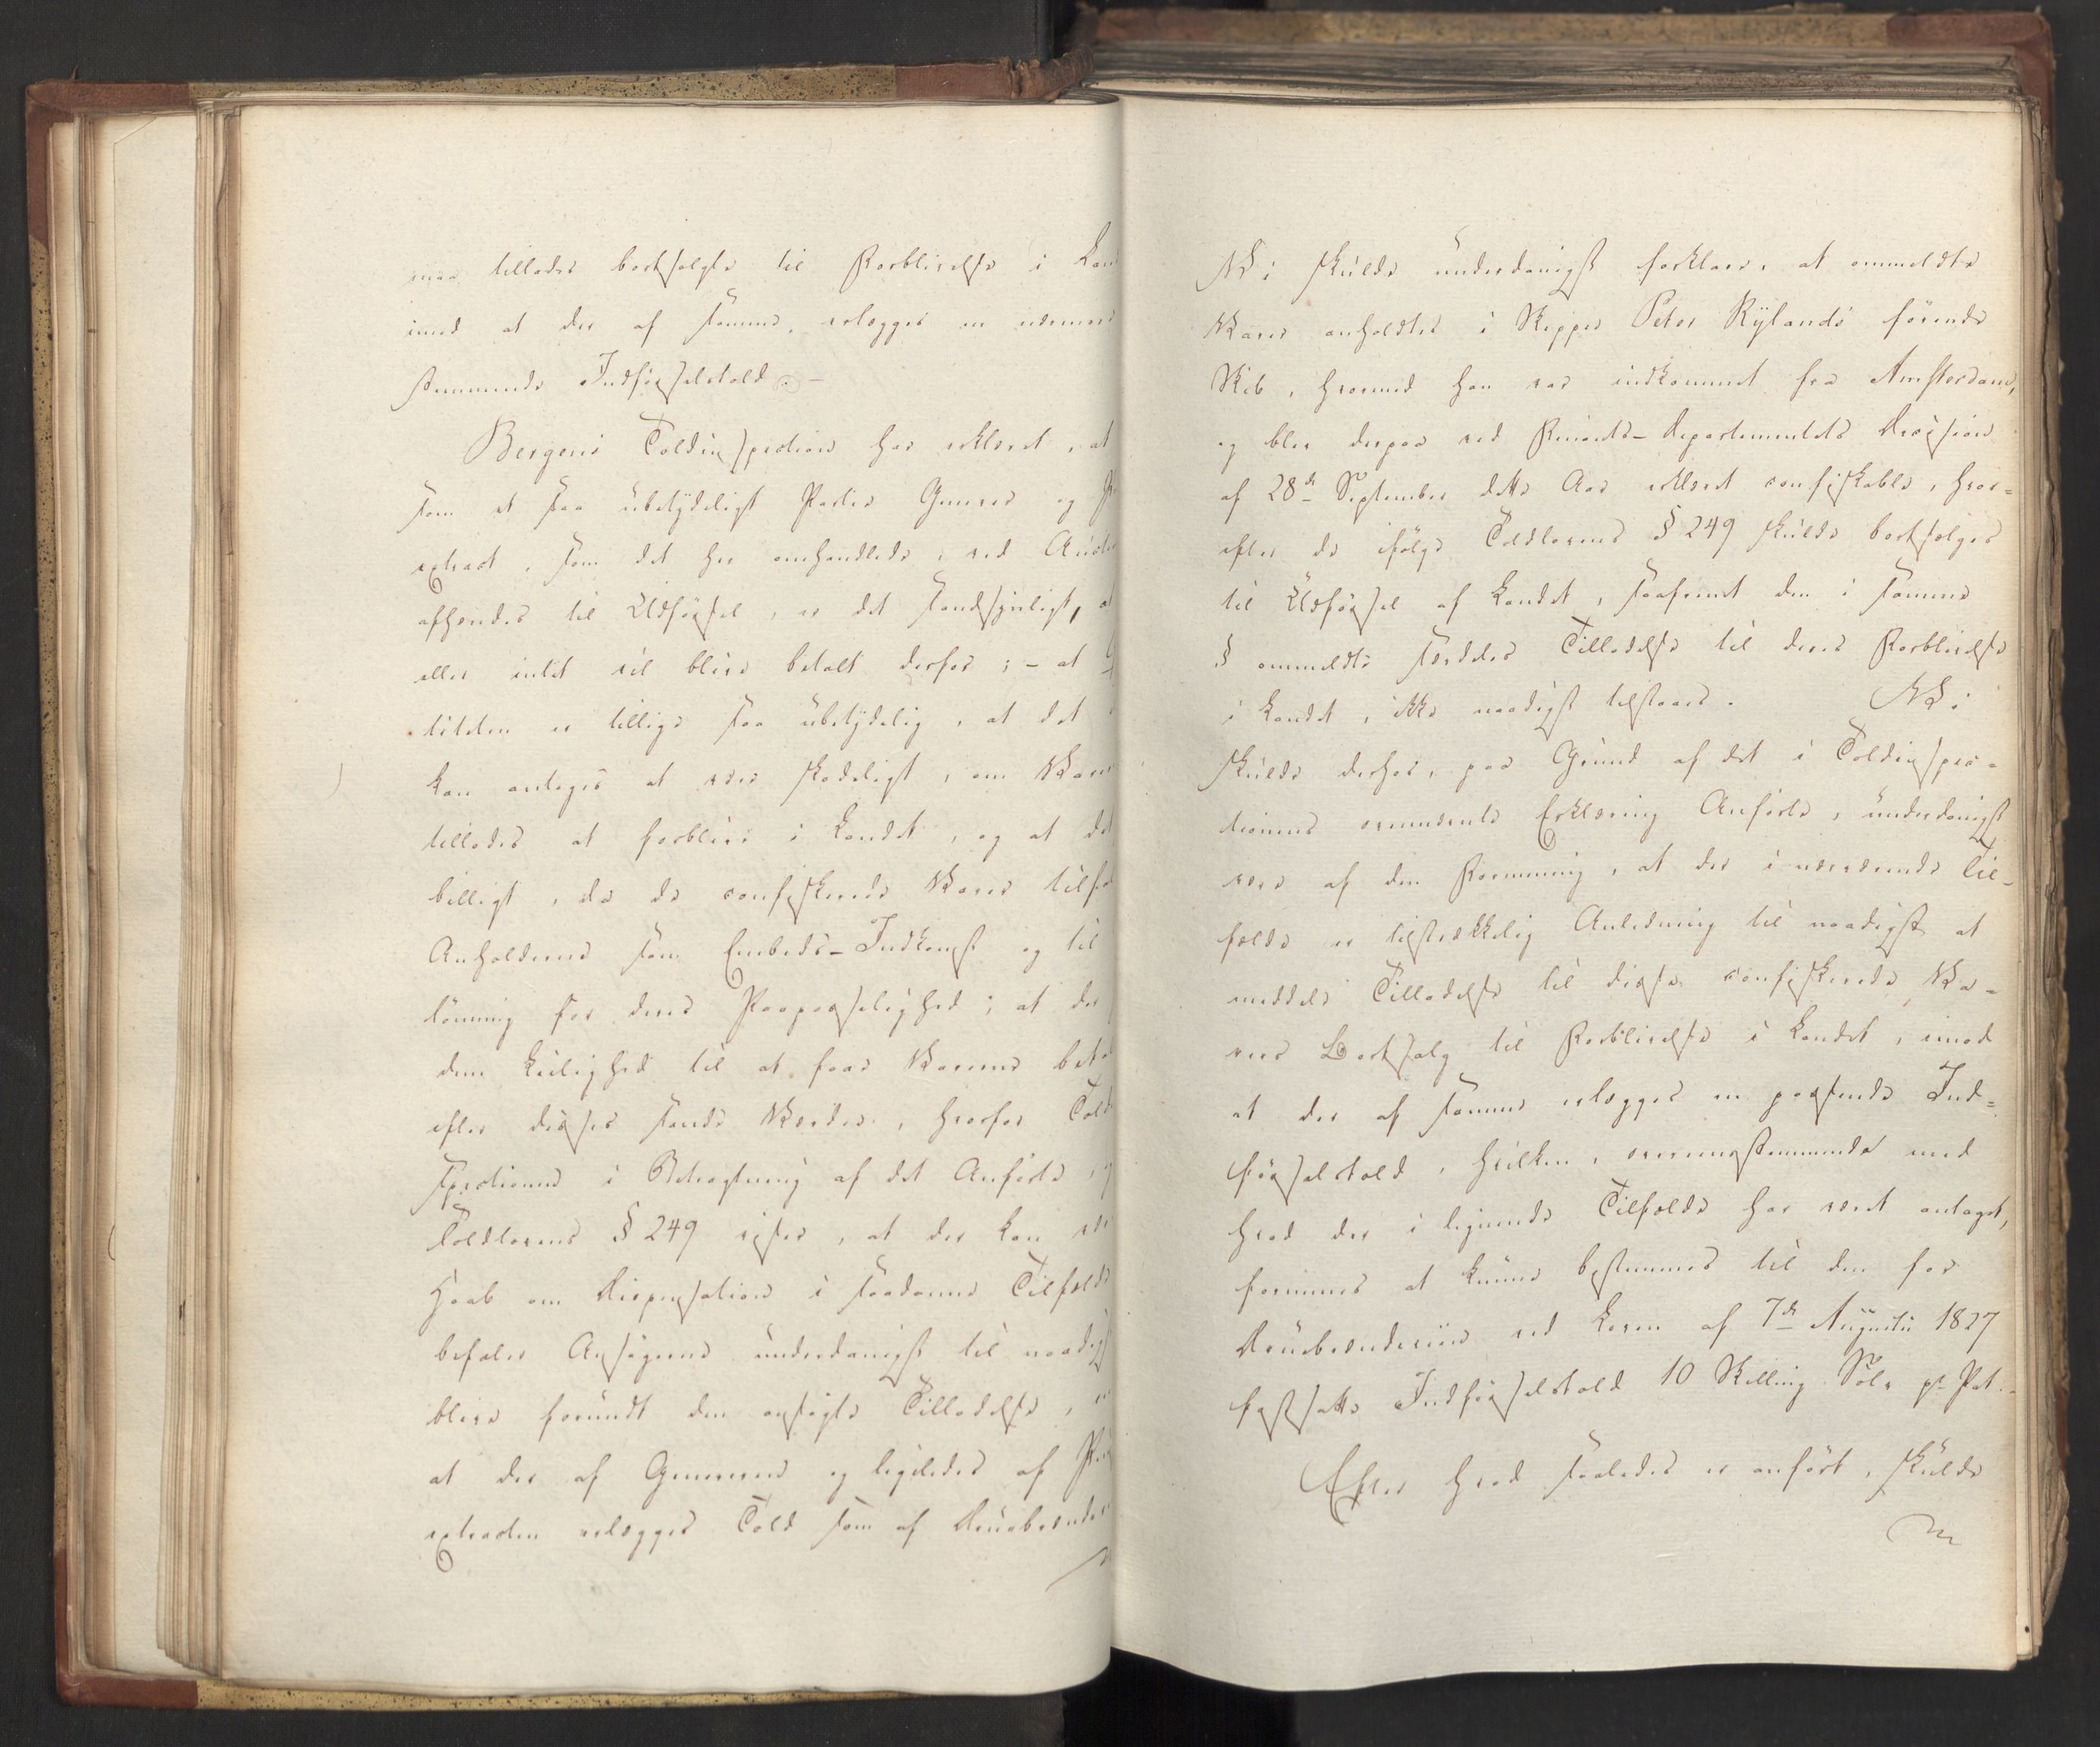 maa tillades bortsolgte til Forblivelse i Lan
imod at der af samme, erlægges en nærmere
stemmende Indførselstold. -
Bergens Toldinspection har erklæret, at
som et saa ubetydeligt Partie Genever og
extract, som det her omhandlede, ved Auct
afhændes til Udførsel, er det sandsynligt, at
eller intet vil blive betalt derfor; - at
titeten er tillige saa ubetydelig, at det
kan antages at være skadeligt, om Vare
tillades at forblive i Landet, og at det
billigt, da de confiskerede Varer tilfal
Anholderne som Embeds-Indkomst og til
lønning for deres Paapasselighed; at der
dem Leilighed til at faae Varerne beta
efter disses sande Værdie, hvorfor Told
spectionen i Betragtning af det Anførte, og
Toldlovens § 249 viser, at der kan vær
Haab om Dispensation i saadanne Tilfælde
befaler Ansøgerne underdanigst til naadigst
blive forundt den ansøgte Tilladelse,
at der af Geneveren og ligeledes af
extracten erlægges Told som af Druebrænde
Vi skulde underdanigst forklare, at ommeldte
Varer anholdtes i Skipper Peter Rylands førende
Skib, hvormed han var indkommet fra Amsterdam,
og blev derpaa ved Finants-Departementets Decision
af 28de September dette Aar erklæret confiskable, hvor=
efter de ifølge Toldlovens § 249 skulde bortsælges
til Udførsel af Landet, saafremt den i samme
§ ommeldte særdeles Tilladelse til deres Forblivelse
i Landet, ikke naadigst tilstaaes. Vi
skulde derhos, paa Grund af det i Toldinspec=
tionens ovennævnte Erklæring Anførte, underdanigst
være af den Formening, at der i nærværende Til=
fælde er tilstrækkelig Anledning til naadigst at
meddele Tilladelse til disse confiskerede Va=
rers Bortsalg til Forblivelse i Landet, imod
at der af samme erlægges en passende Ind=
førselstold, hvilken, overeensstemmende med
hvad der i lignende Tilfælde har været antaget,
formenes at kunne bestemmes til den for
Druebrændeviin ved Loven af 7de Augusti 1827
fastsatte Indførselstold 10 Skilling Sølv pr Pot.
Efter hvad saaledes er anført, skulde